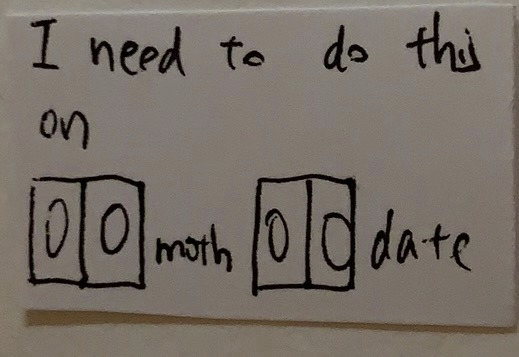 I need to do this
on
00 moth 00 date